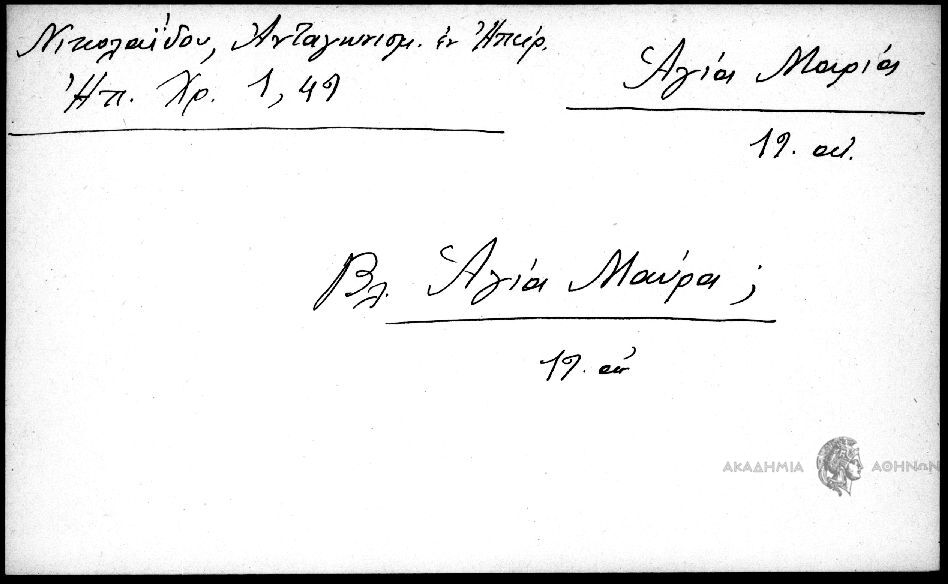 Νικολαΐδου, Ἀνταγωνισμ. ἐν Ἠπείρ.
Ἠπ. Χρ. 1, 49
Ἁγία Μαρία
19. αἰ.
Βλ. Ἁγία Μαύρα;
19. αἰ
ΑΚΑΔΗΜΙΑ ΑΘΗΝΩΝ